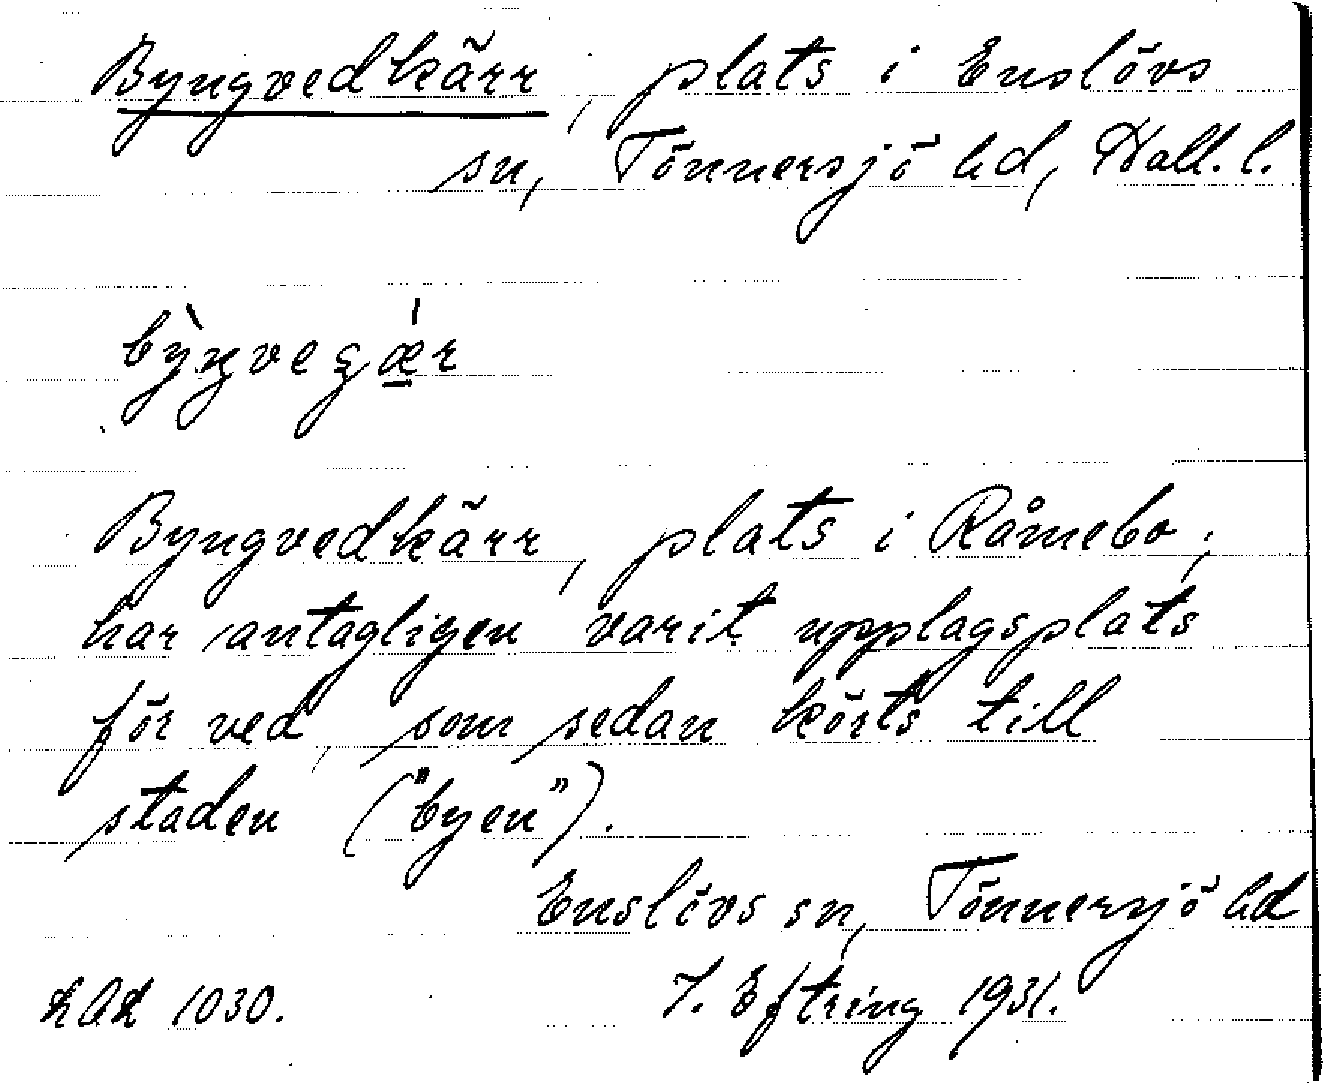 Byngvedkärr, plats i Enslövs
sn, Tönnersjö hd, Hall. l.
bỳŋveʒǽr
Byngvedkärr, plats i Råmebo;
har antagligen varit upplagsplats
för ved, som sedan körts till
staden ("byen").
Enslövs sn, Tönnersjö hd
1030. J. Eftring 1931.